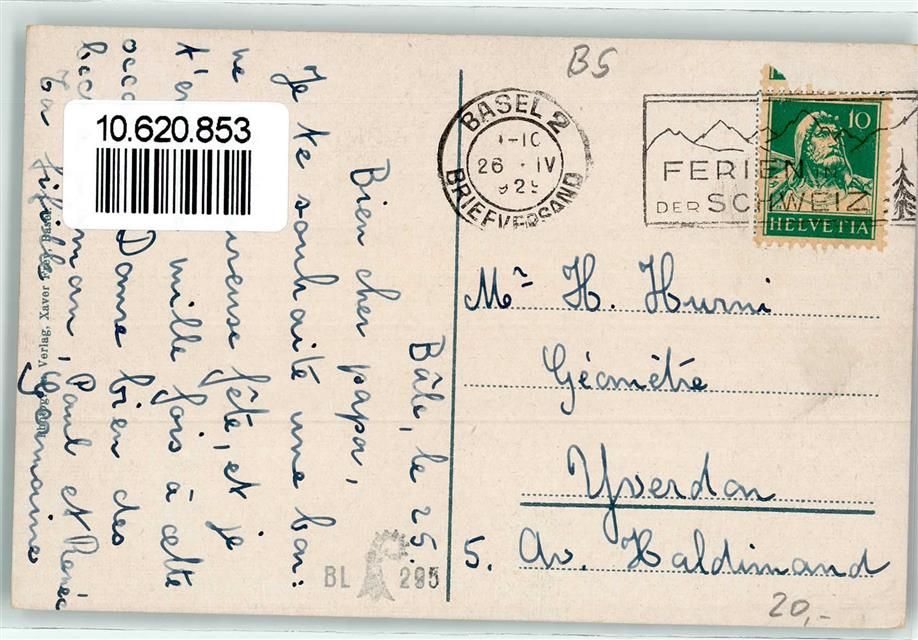 Bâle, le 25.
Bien cher papa,
Je te souhaite une bon:
ne heureuse fête, et je
t'em mille fois à cette
occa Donne bien des
bec maman, Paul et Renée
Ta fifille Germaine
Verlag, Xaver Frey, Basel
10.620.853
BS
BASEL 2
26. IV
BRIEFVERSAND
FERIEN IN
DER SCHWEIZ
10
HELVETIA
Mr H. Hurni
Géomètre
Yverdon
5. Av. Haldimand
BL 295
20,-